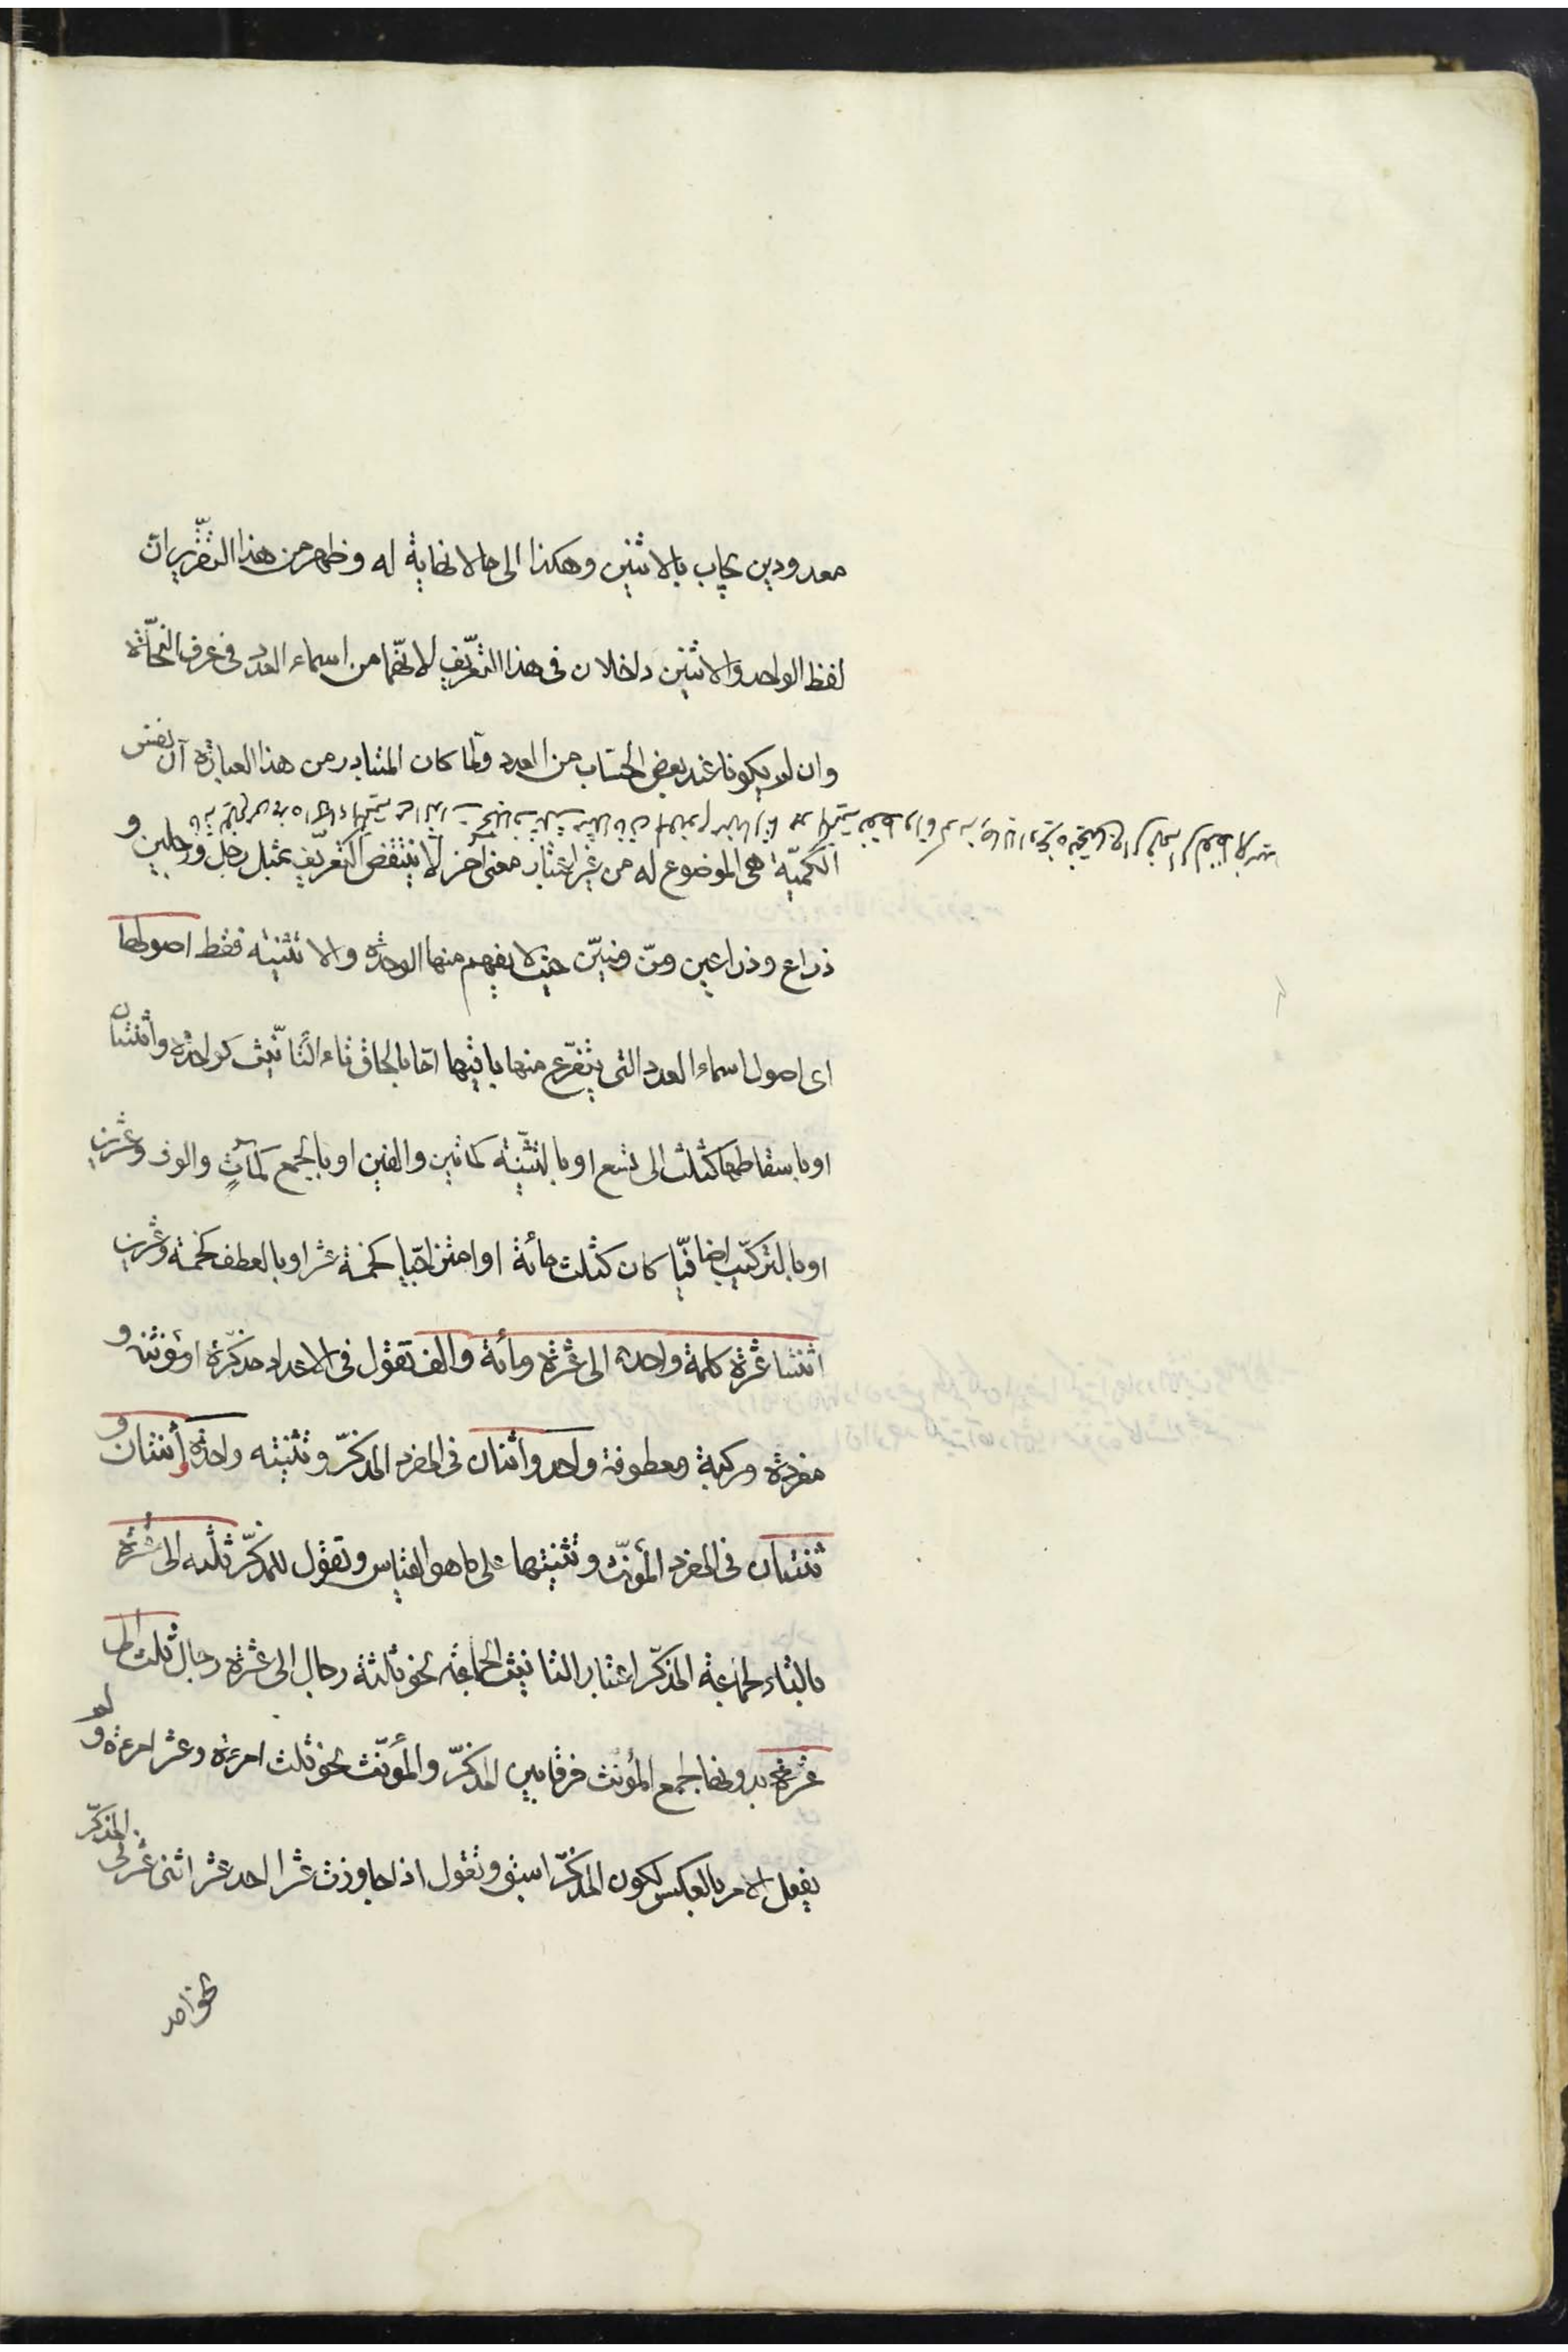 معدودين يجاب بالاثنين وهكذا الى ما لا نهاية له وظهر من هذا التقرير ان
لفظ الواحد والاثنين داخلان فى هذا التعريف لانهما من اسماء العدد فى عرف النحاة
وان لم يكونا عند بعض الحساب من العدد ولما كان المتبادر من هذا العبارة ان نفس
الكمية هى الموضوع له من غير اعتبار معنى اخر لا ينتقض التعريف بمثل رجل ورجلين و
ذراع وذراعين ومن ومنين حيث لا يفهم منها الوحدة والاثنينية فقط اصولها
اى اصول اسماء العدد التى يتفرع منها باقيها امّا بالحاق تاء التأنيث كواحدة واثنتان
او باسقاطها كثلث الى تسع او بالتثنية كمائتين والفين او بالجمع كمآت والوف وعشرين
او بالتركيب اضافيّا كان كثلث مائة او امتزاجيّا كخمسة عشر او بالعطف كخمسة وعشرين
اثنتا عشرة كلمة واحد الى عشرة ومائة والف تقول فى الاعداد مذكّرة او مؤنثة و
مفردة ومركبة ومعطوفة واحد واثنان فى المفرد المذكّر وتثنيته واحدة اثنتان و
ثنتان فى المفرد المؤنّث وتثنيتها على ما هو القياس وتقول للمذكّر ثلثة الى عشرة
بالتاء لجماعة المذكّر اعتبار التأنيث الجماعة نحو ثلثة رجال الى عشرة رجال ثلث الى
عشرة بدونها لجمع المؤنث فرقا بين المذكّر والمؤنّث نحو ثلث امرءة وعشر امرءة ولم
يفعل الامر بالعكس لكون المذكّر اسبق وتقول اذا جاوزت عشرا احد عشر اثنى عشر فى المذكّر